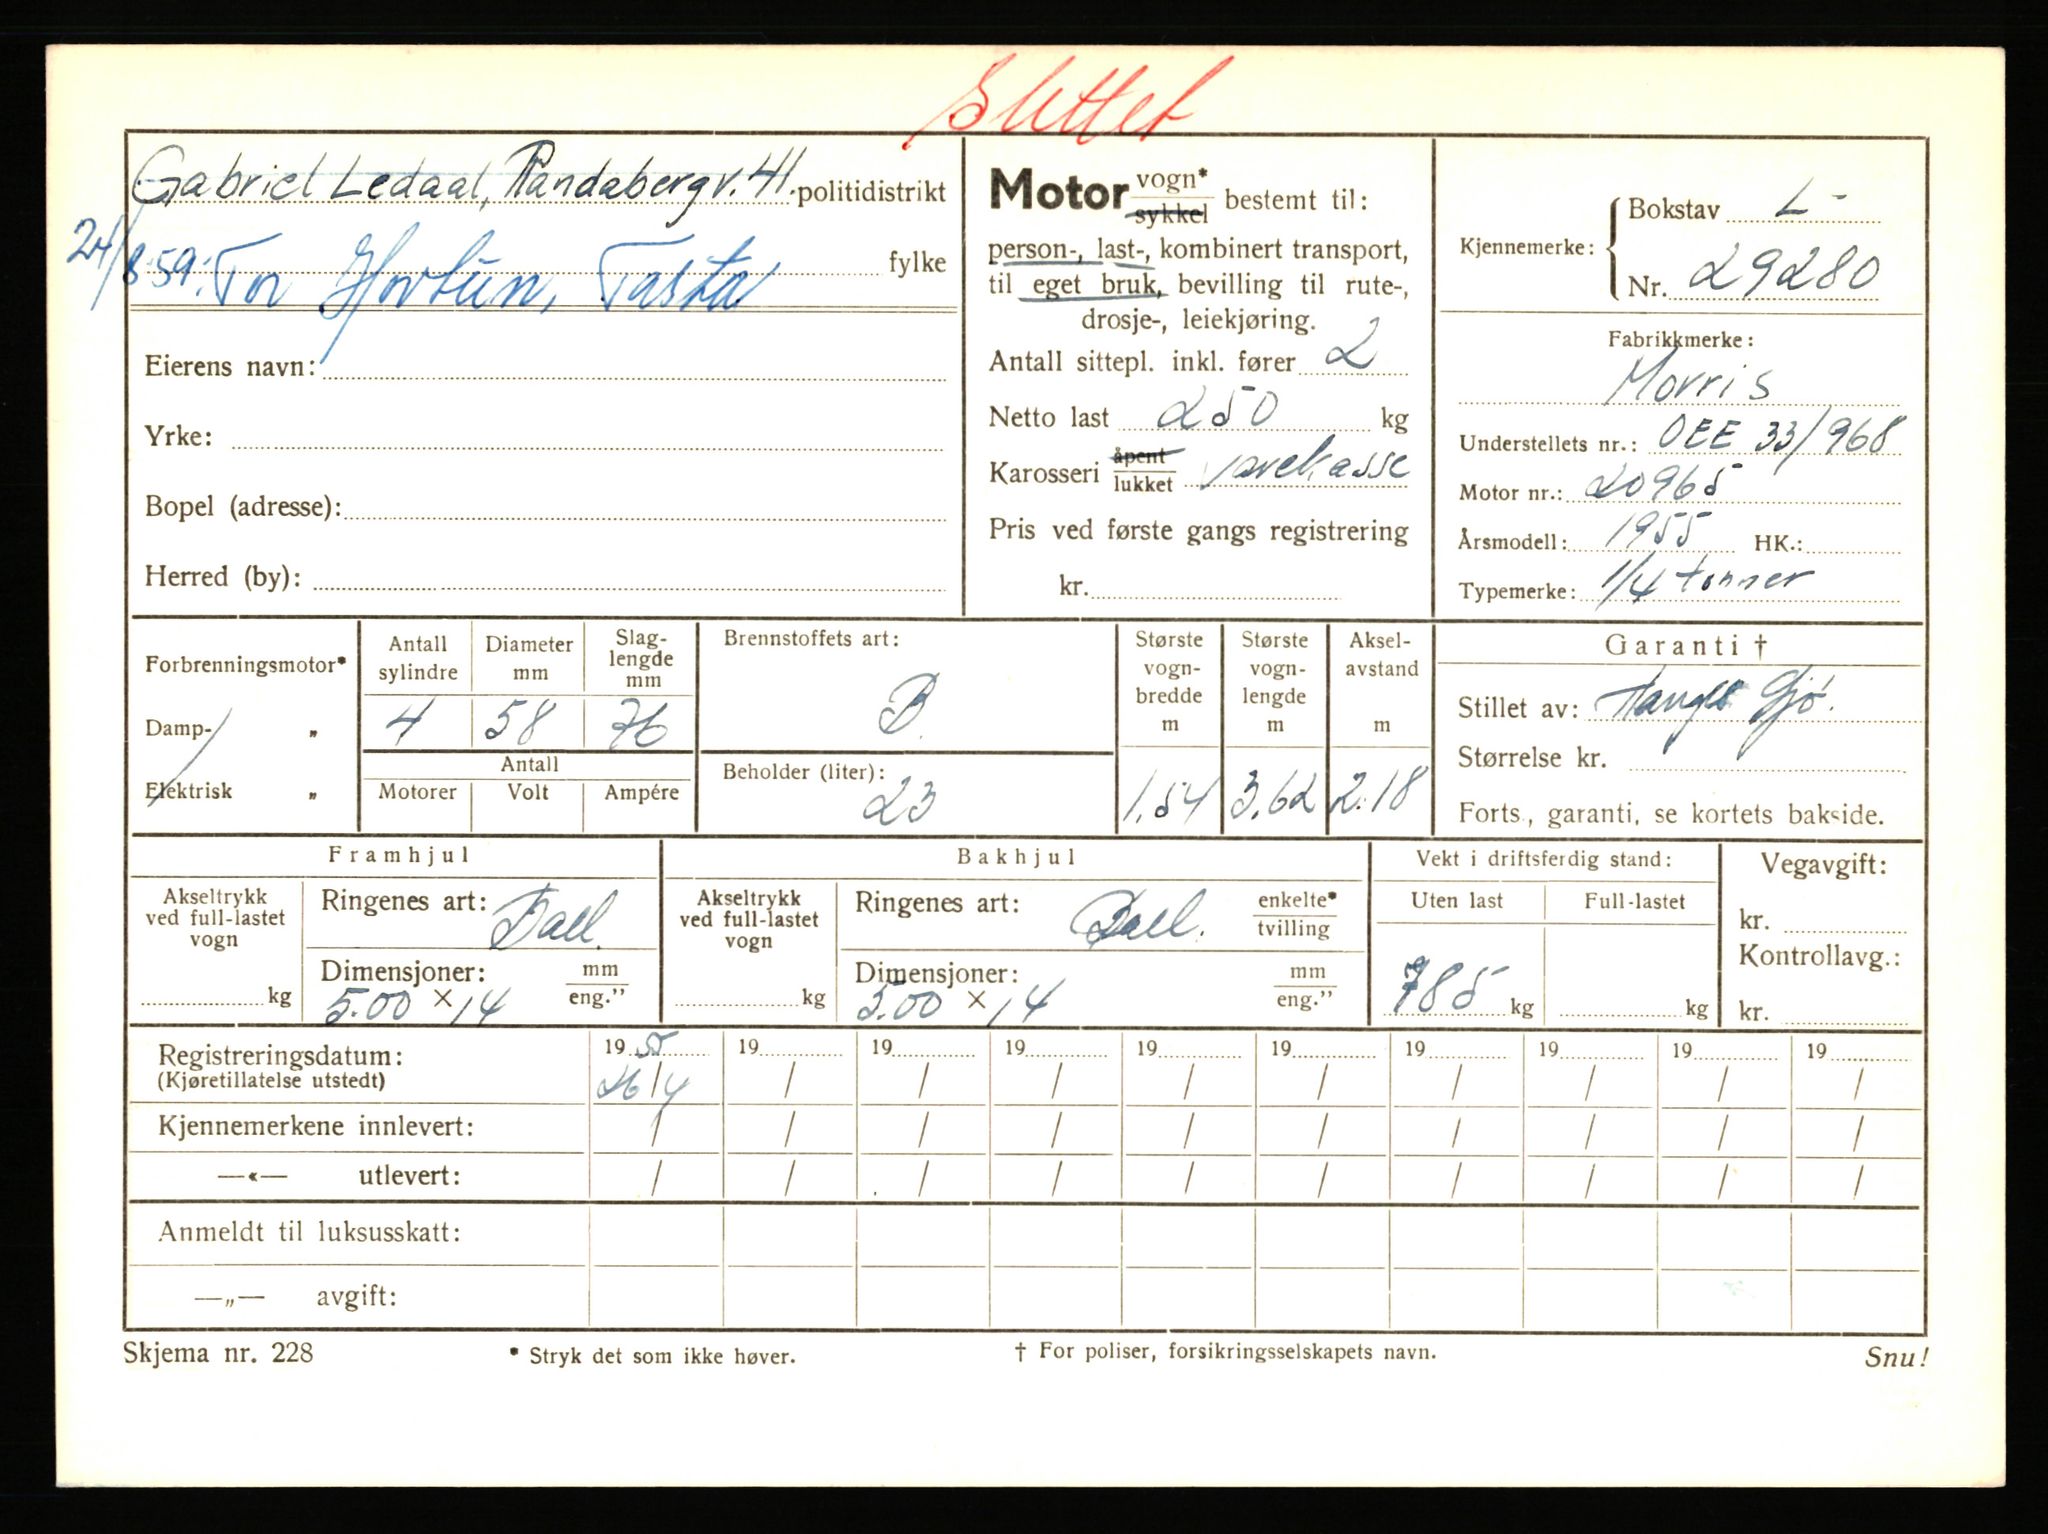 Slettet
Gabriel Ledaal, Randabergv. 41. politidistrikt
24/8 59: Tor Hortun, Tasta fylke
Eierens navn:
Yrke:
Bopel (adresse):
Herred (by):
Motor vogn* sykkel bestemt til:
person-, last-, kombinert transport,
til eget bruk, bevilling til rute-,
drosje-, leiekjøring.
Antall sittepl. inkl. fører 2
Netto last 250 kg
Karosseri åpent lukket varekasse
Pris ved første gangs registrering
kr.
Kjennemerke: Bokstav L-
Nr. 29280
Fabrikkmerke:
Morris
Understellets nr.: OEE 33/968
Motor nr.: 20965
Årsmodell: 1955 HK.:
Typemerke: 1/4 tonner
Forbrenningsmotor*
Damp- "
Elektrisk "
Antall sylindre Diameter mm Slag-lengde mm
4 58 76
Antall
Motorer Volt Ampére
Brennstoffets art:
B.
Beholder (liter):
23
Største vogn-bredde m Største vogn-lengde m Aksel-avstand m
1.54 3.62 2.18
Garanti †
Stillet av: Gjø.
Størrelse kr.
Forts., garanti, se kortets bakside.
Framhjul
Akseltrykk ved full-lastet vogn
kg
Ringenes art: Ball.
Dimensjoner: mm eng."
5.00 × 14
Bakhjul
Akseltrykk ved full-lastet vogn
kg
Ringenes art: Ball. enkelte* tvilling
Dimensjoner: mm eng."
5.00 × 14
Vekt i driftsferdig stand:
Uten last Full-lastet
785 kg kg
Vegavgift:
kr.
Kontrollavg.:
kr.
Registreringsdatum: 19 55 19 19 19 19 19 19 19 19 19
(Kjøretillatelse utstedt) 26/4 / / / / / / / / /
Kjennemerkene innlevert: / / / / / / / / / /
—«— utlevert: / / / / / / / / / /
Anmeldt til luksusskatt:
—„— avgift:
Skjema nr. 228 * Stryk det som ikke høver. † For poliser, forsikringsselskapets navn. Snu!